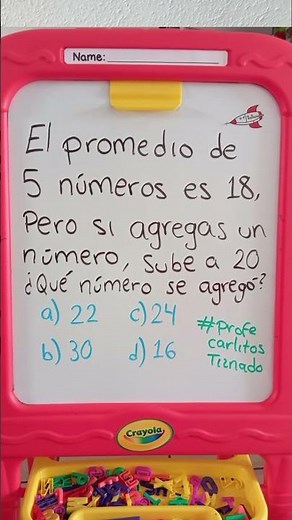 Name:
El promedio de
5 números es 18,
Pero si agregas un
número, sube a 20
¿Qué número se agregó?
a) 22 c) 24
b) 30 d) 16
#profe
carlitos
Tiznado
Crayola